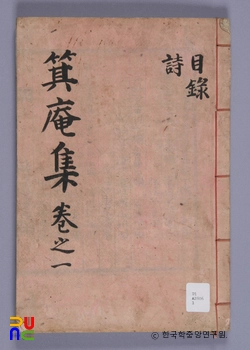 目錄
詩
箕庵集 卷之一
ⓒ 한국학중앙연구원